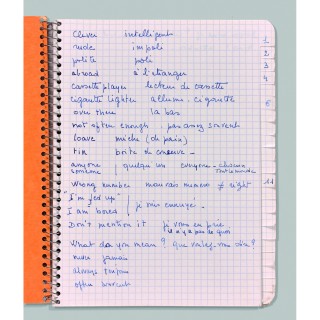 Clever intelligent
rude impoli
polite poli
abroad à l'étranger
cassette player lecteur de cassette
cigarette lighter allume-cigarette
over there là bas
not often enough pas assez souvent
loave miche (de pain)
tin boîte de conserve
anyone quelqu'un everyone - chacun
someone tout le monde
Wrong number mauvais numéro ≠ right
I'm fed up
I am bored je m'ennuye
Don't mention it je vous en prie
il n'y a pas de quoi
What do you mean? que voulez-vous dire?
never jamais
always toujours
often souvent
1
2
3
4
8
11